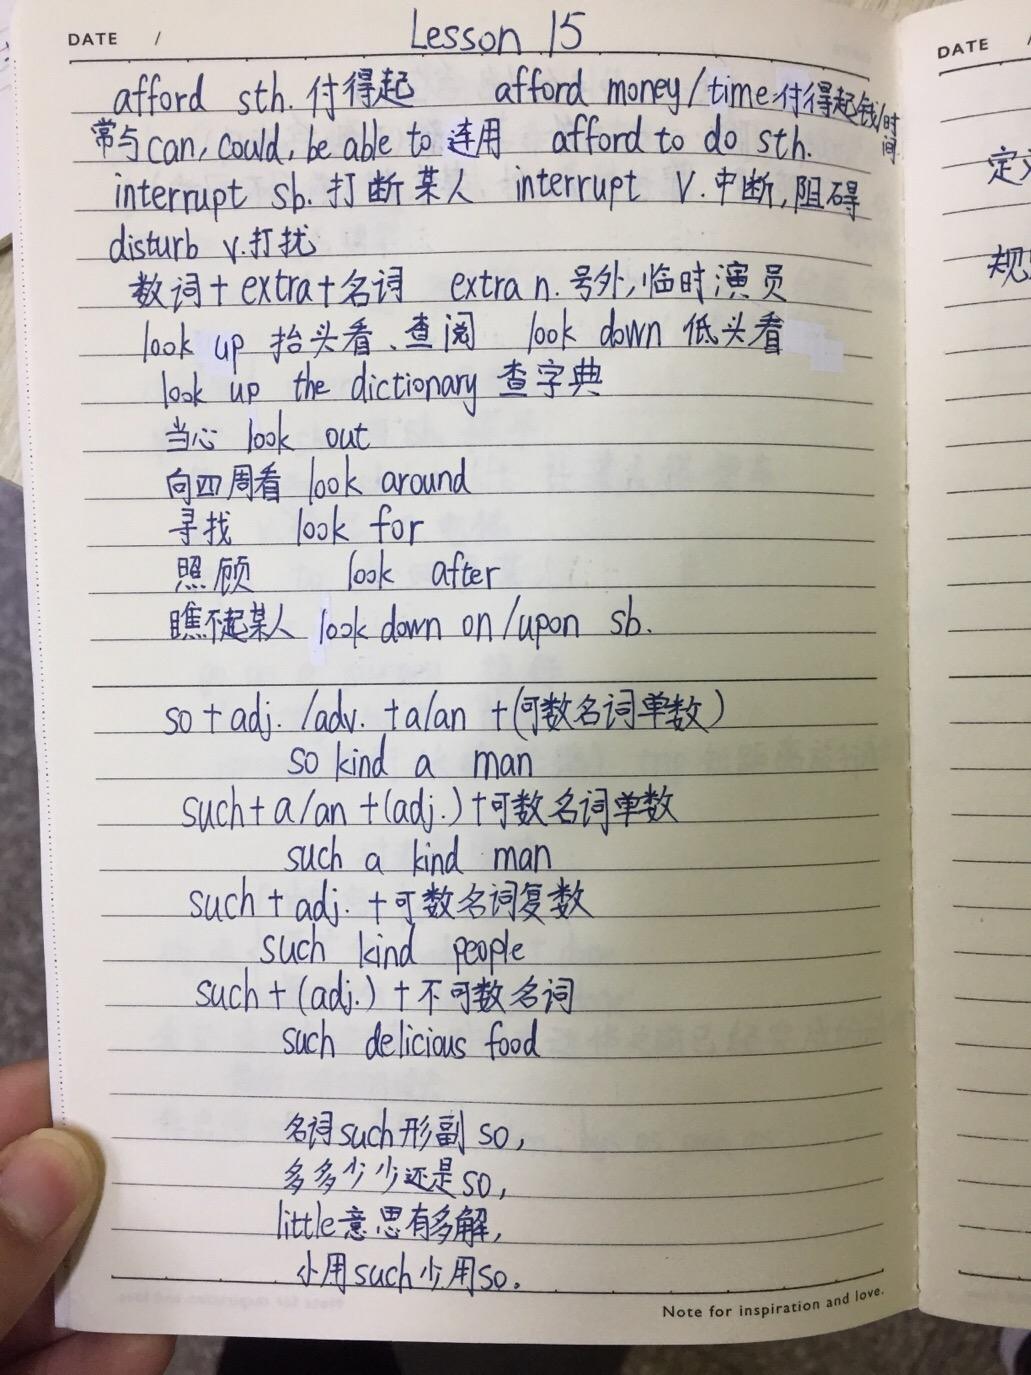 DATE /
Lesson 15
afford sth. 付得起 afford money/time 付得起钱/时间
常与can, could, be able to 连用 afford to do sth.
interrupt sb. 打断某人 interrupt v. 中断,阻碍
disturb v.打扰
数词+extra+名词 extra n. 号外,临时演员
look up 抬头看、查阅 look down 低头看
look up the dictionary 查字典
当心 look out
向四周看 look around
寻找 look for
照顾 look after
瞧不起某人 look down on/upon sb.
so+adj./adv. +a/an +(可数名词单数)
so kind a man
such+a/an+(adj.)+可数名词单数
such a kind man
such+adj.+可数名词复数
such kind people
such+(adj.)+不可数名词
such delicious food
名词such形副so,
多多少少还是so,
little意思有多解,
小用such少用so.
Note for inspiration and love.
DATE /
定义
规